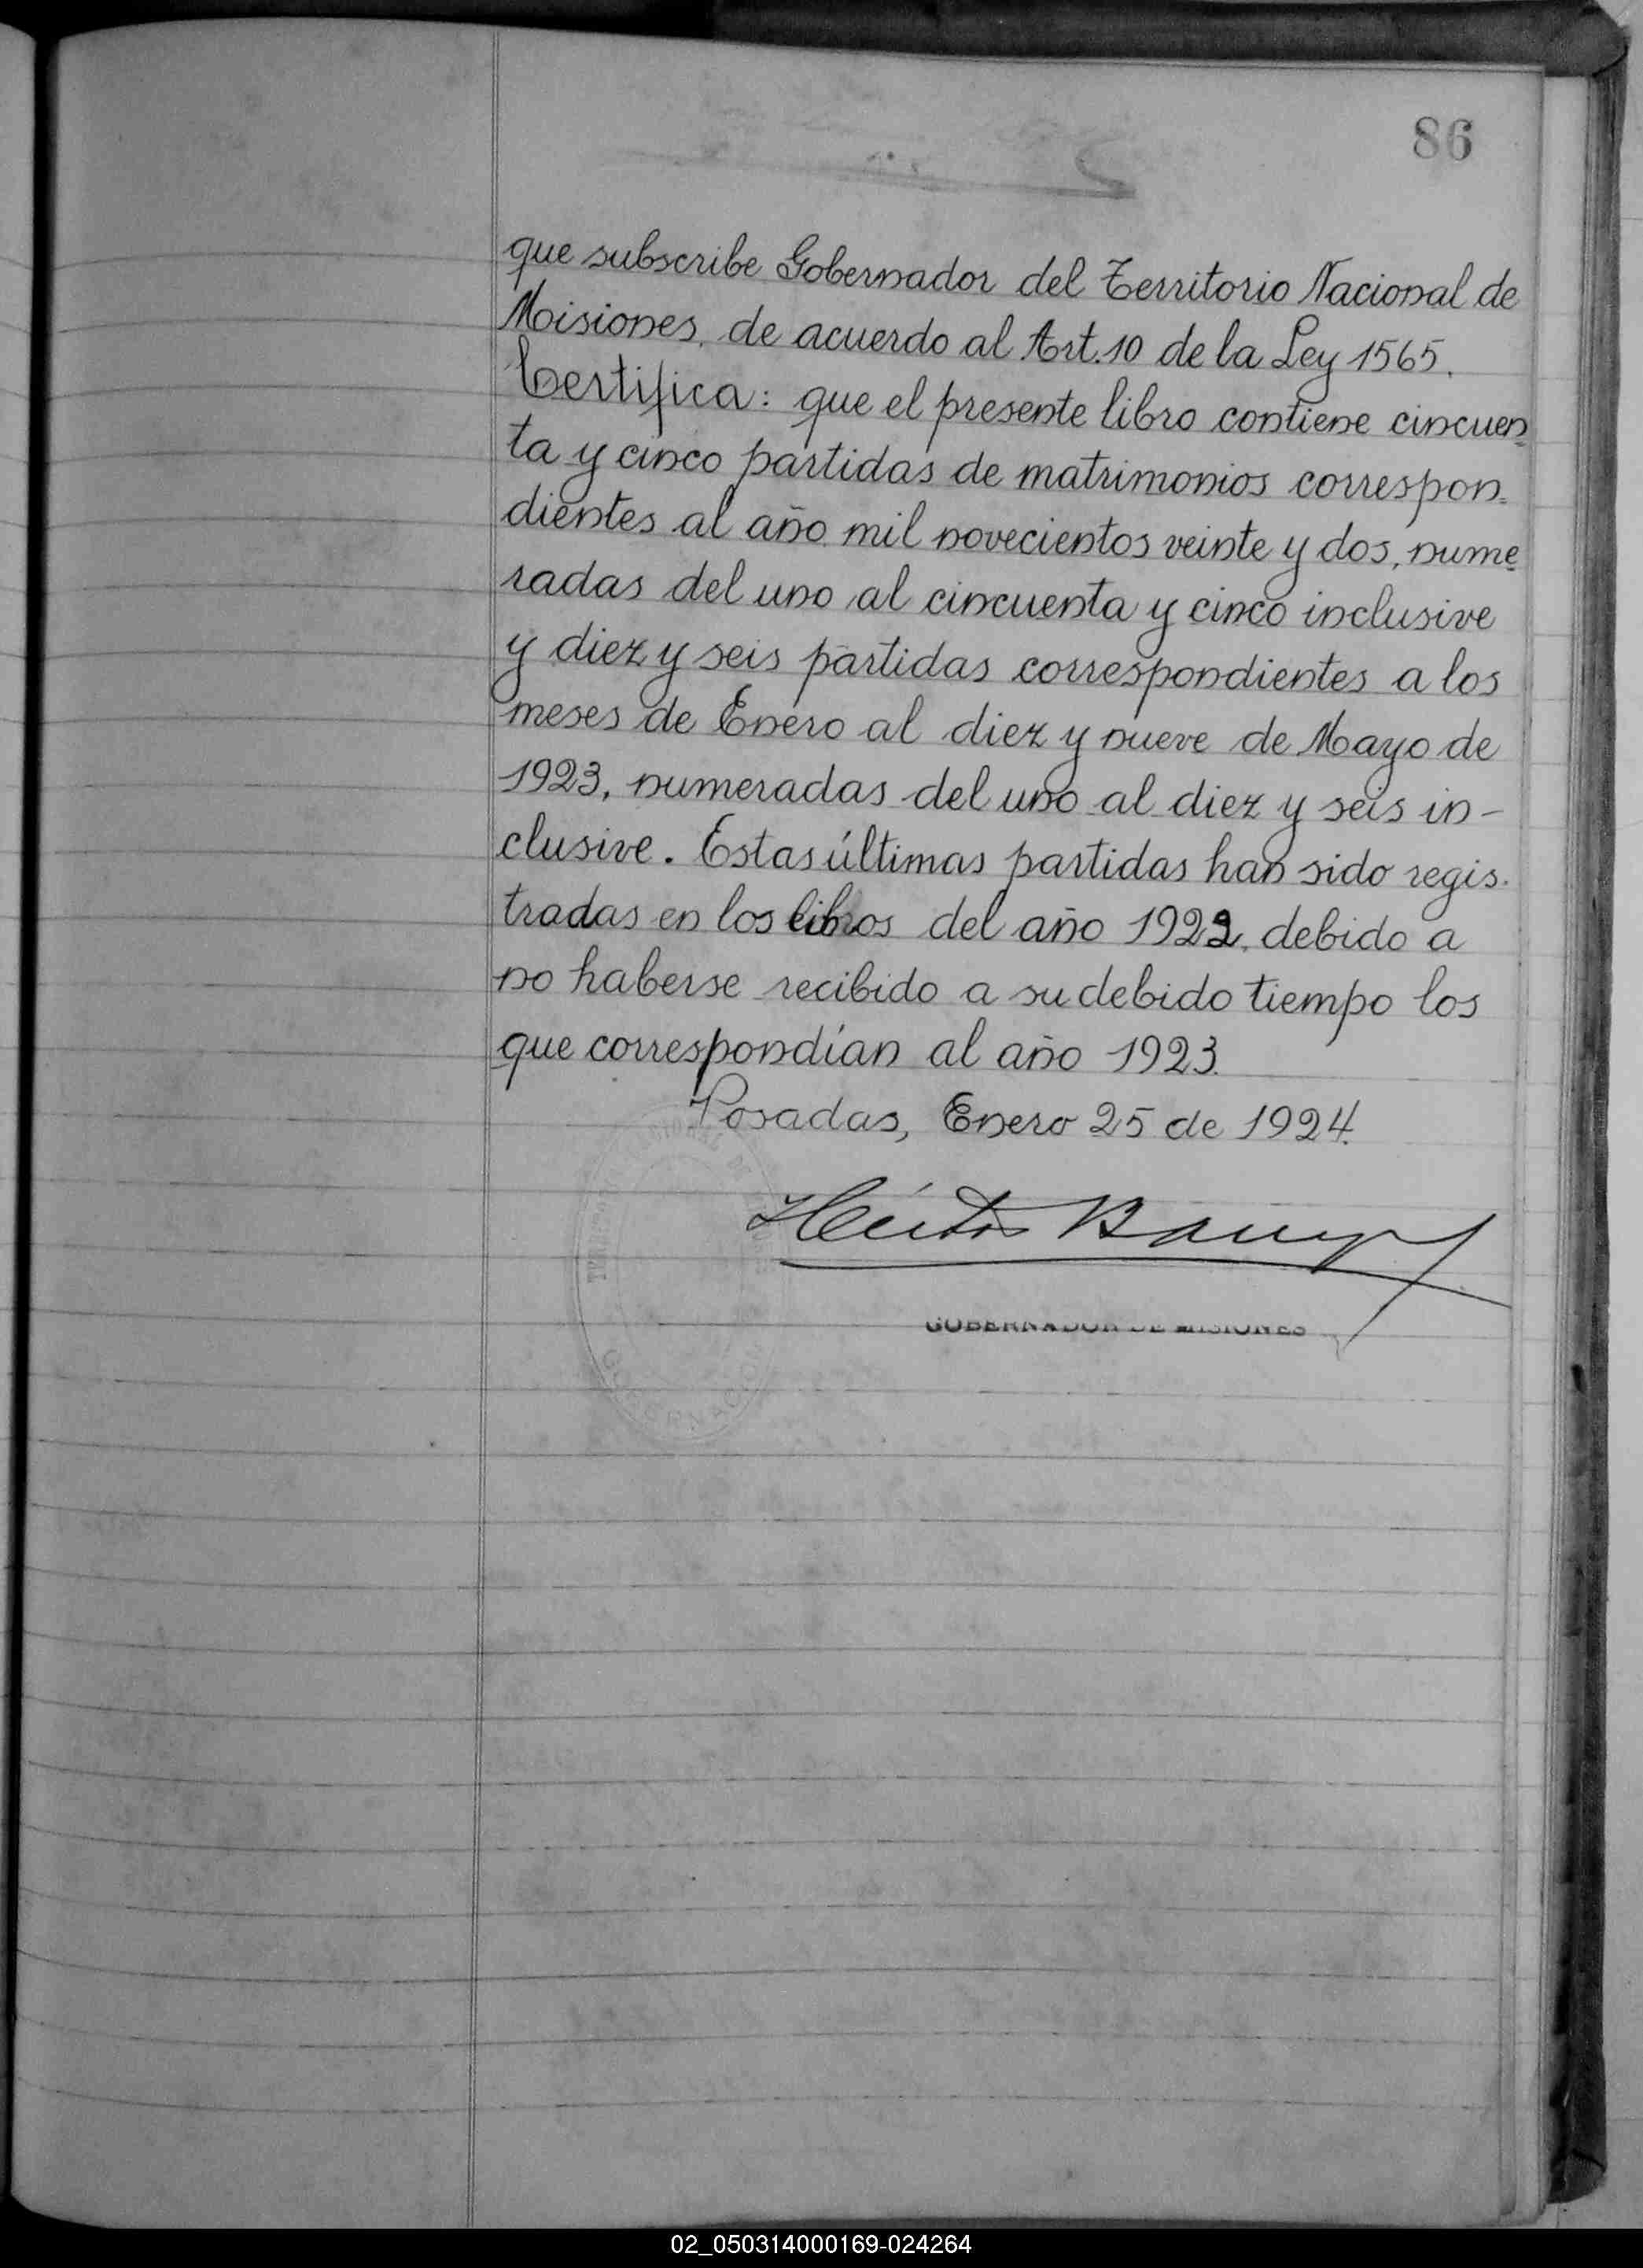 86
que subscribe Gobernador del Territorio Nacional de
Misiones, de acuerdo al Art. 10 de la Ley 1565.
Certifica: que el presente libro contiene cincuen=
ta y cinco partidas de matrimonios correspon=
dientes al año mil novecientos veinte y dos, nume
radas del uno al cincuenta y cinco inclusive
y diez y seis partidas correspondientes a los
meses de Enero al diez y nueve de Mayo de
1923, numeradas del uno al diez y seis in-
clusive. Estas últimas partidas han sido regis-
tradas en los libros del año 1922, debido a
no haberse recibido a su debido tiempo los
que correspondían al año 1923.
Posadas, Enero 25 de 1924.
Héctor
GOBERNADOR DE MISIONES
02_050314000169-024264